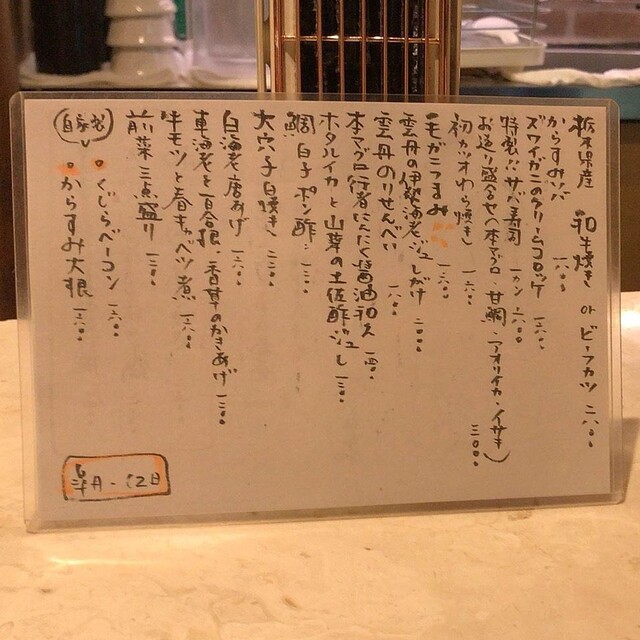 栃木県産 和牛焼き or ビーフカツ 二八〇〇
からすみソバ 一八〇〇
ズワイガニのクリームコロッケ 一三〇〇
特製!!サバ寿司 一カン 六〇〇
お造り盛合せ(本マグロ・甘鯛・アオリイカ・イサキ) 三〇〇〇
初カツオわら焼き 一六〇〇
毛がニつまみ 一八〇〇
雲丹の伊勢海老ジュレがけ 二〇〇〇
雲丹のりせんべい 一八〇〇
本マグロ行者にんにく醤油和え
ホタルイカと山菜の土佐酢ジュレ 一三〇〇
鯛白子ポン酢 一三〇〇
大穴子白焼き 二二〇〇
白海老唐あげ 一六〇〇
車海老と百合根、香草のかきあげ 一三〇〇
牛モツと春キャベツ煮 一六〇〇
前菜三点盛り 一三〇〇
自家製
くじらベーコン 一六〇〇
からすみ大根 一六〇〇